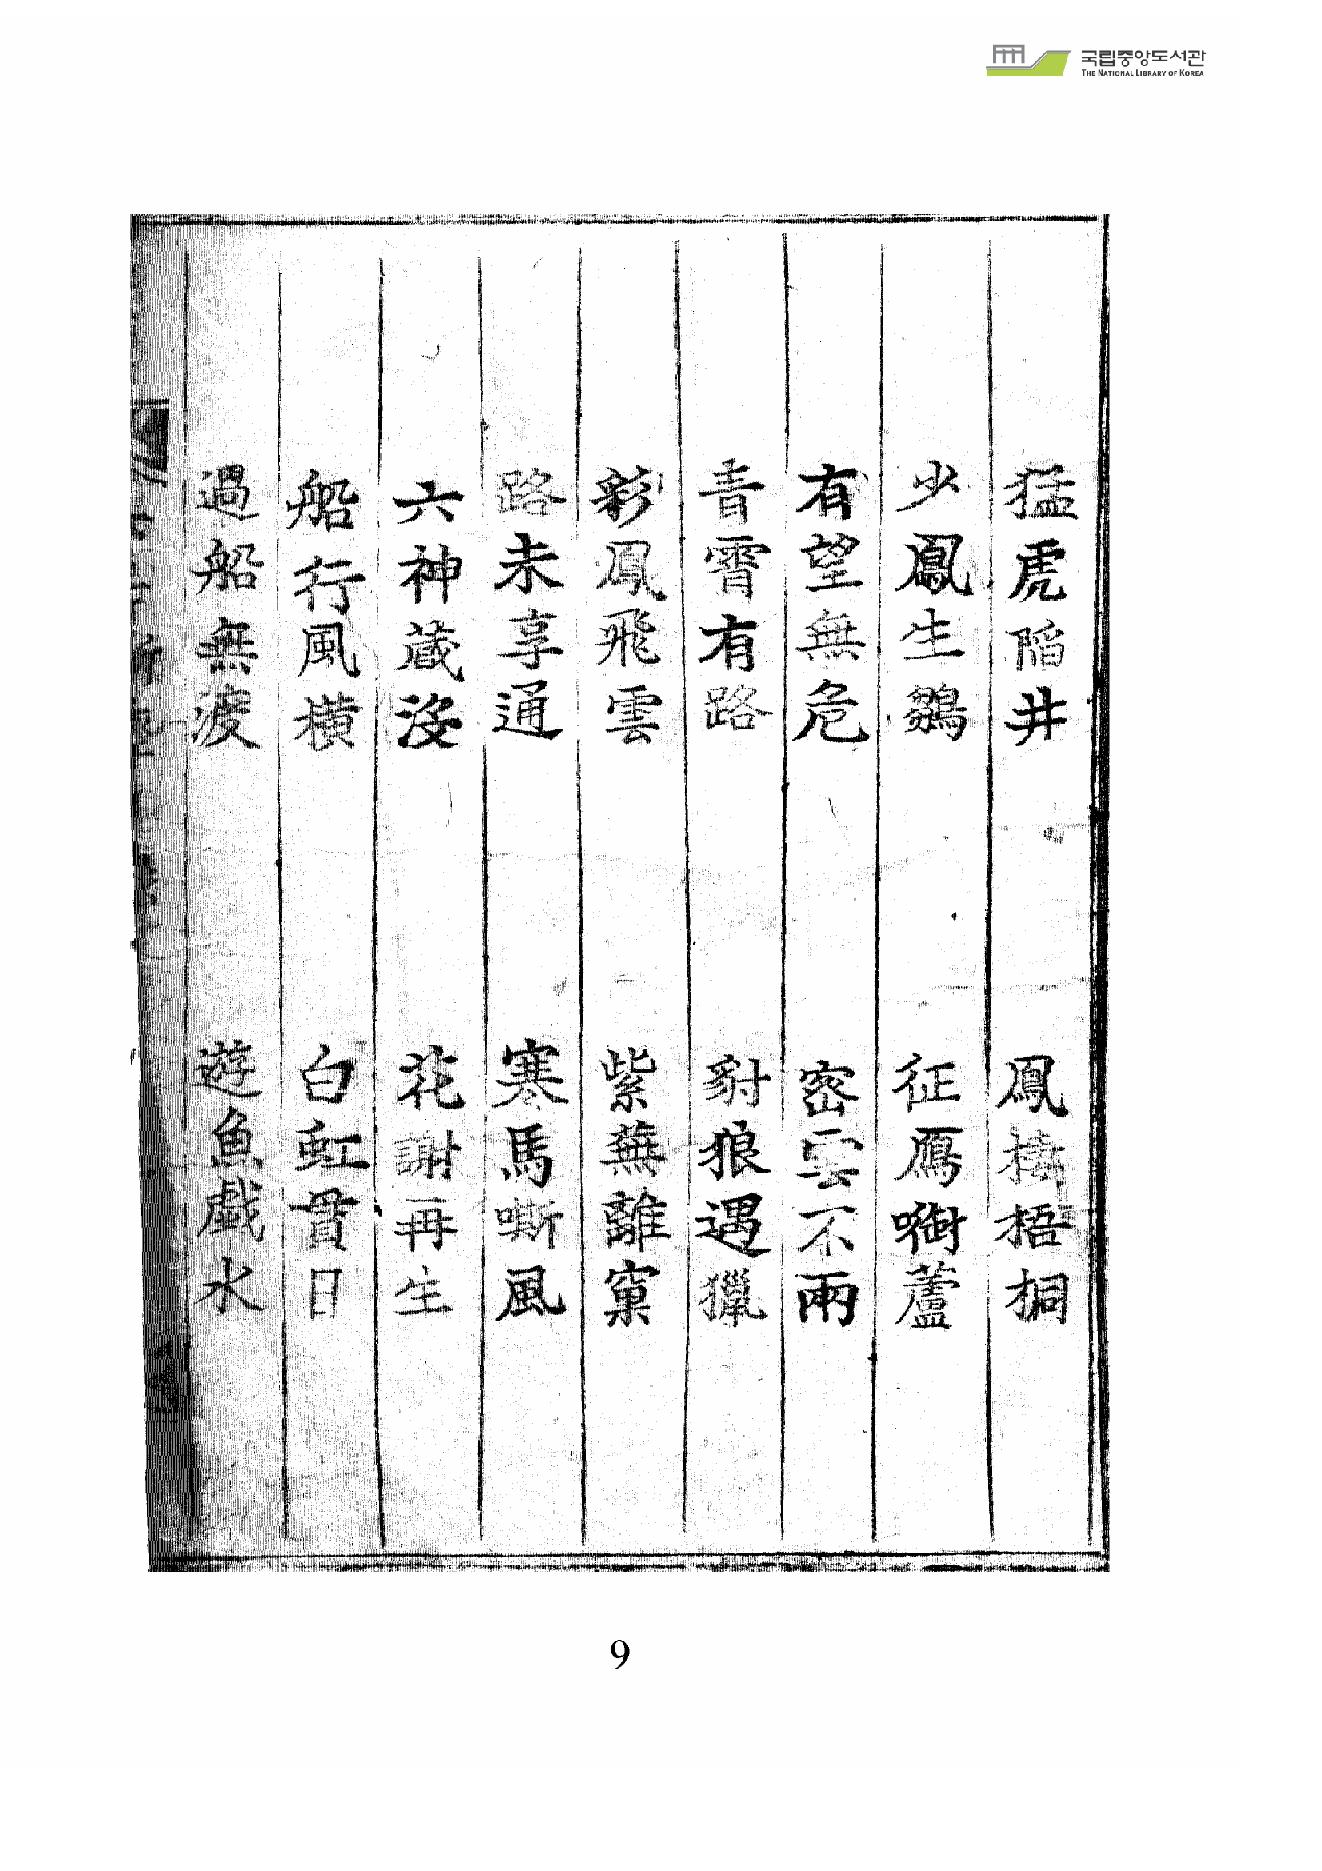 국립중앙도서관
THE NATIONAL LIBRARY OF KOREA
猛虎陷井 鳳棲梧桐
少鳳生鶵 征鴈啣蘆
有望無危 密雲不雨
青霄有路 豺狼遇獵
彩鳳飛雲 紫燕離窠
路未享通 寒馬嘶風
六神藏沒 花謝再生
船行風橫 白虹貫日
過船無渡 遊魚戲水
9